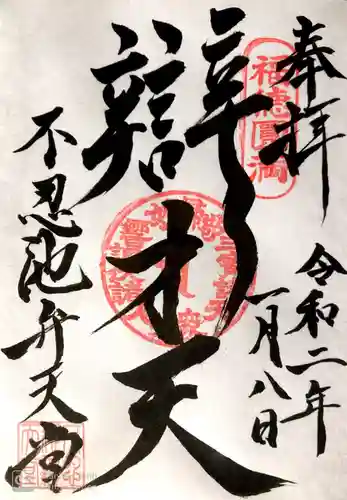 奉拝
福徳圓満
令和二年
一月八日
辯才天
不忍池弁天堂